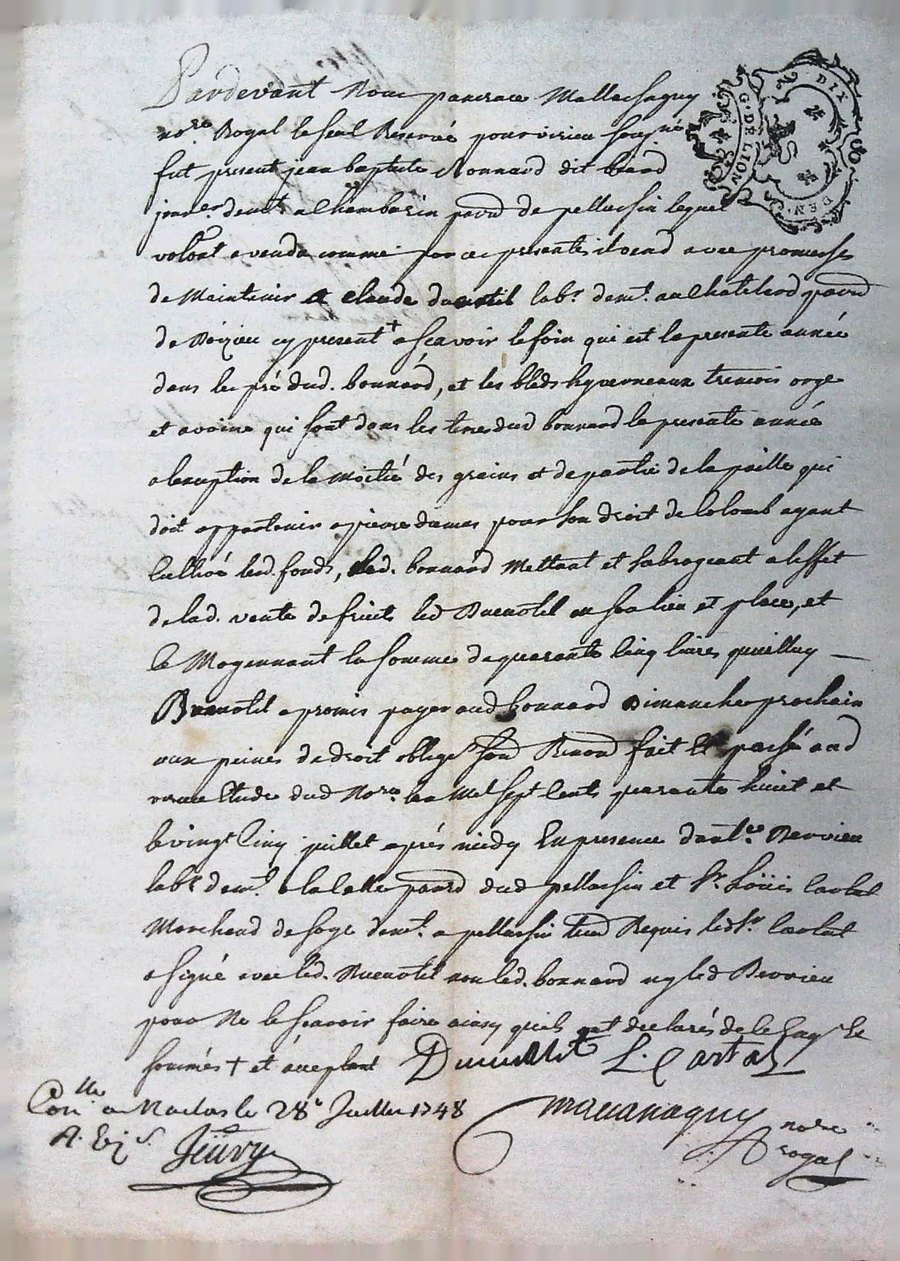 Pardevant Nous pancrace Mallassagny
nore. Royal le seul Reservé pour virieu soussigné
fut present jean baptiste Bonnard dit
jour.er demt. a Chambosin parro de pellussin lequel
volont a vendu comme par ces presentes il vend avec promesses
de Maintenir a claude labr. demt. au Chatelard parro
de Roizieu cy present + ascavoir le foin qui est la presente année
dans le pré dud. bonnard, et les bleds hyverneaux tremois orge
et avoine qui sont dans les terres dud bonnard la presente année
a lexception de la Moitié des grains et de partie de la paille qui
doit appartenir a pierre dumas pour son droit de colomb ayant
cultivé led. fonds, led. bonnard Mettant et subrogeant a leffet
de lad. vente de fruits led en son lieu et place, et
ce Moyennant la somme de quarante Cinq livres qu'icelluy
a promis payer aud bonnard Dimanche prochain
aux peines de droit oblige fait Et passé aud
virieu Etude dud Nore. lan Mil sept Cents quarante huict et
le vingt Cinq juillet après midy En presence
labr. demt. a la parro dud pellussin et Sr. Loüis Cartal
Marchand de soye demt. a pellussin Requis led Sr. Cartal
a signé avec led. non led. bonnard ny led
pour Ne le scavoir faire ainsy quils ont declarés de ce Enq. Et
somés + et acceptant L. Cartal
Conlle. a Maclas le 28e Juillet 1748
nore
royal
G. DE LION
DIX
DEN.